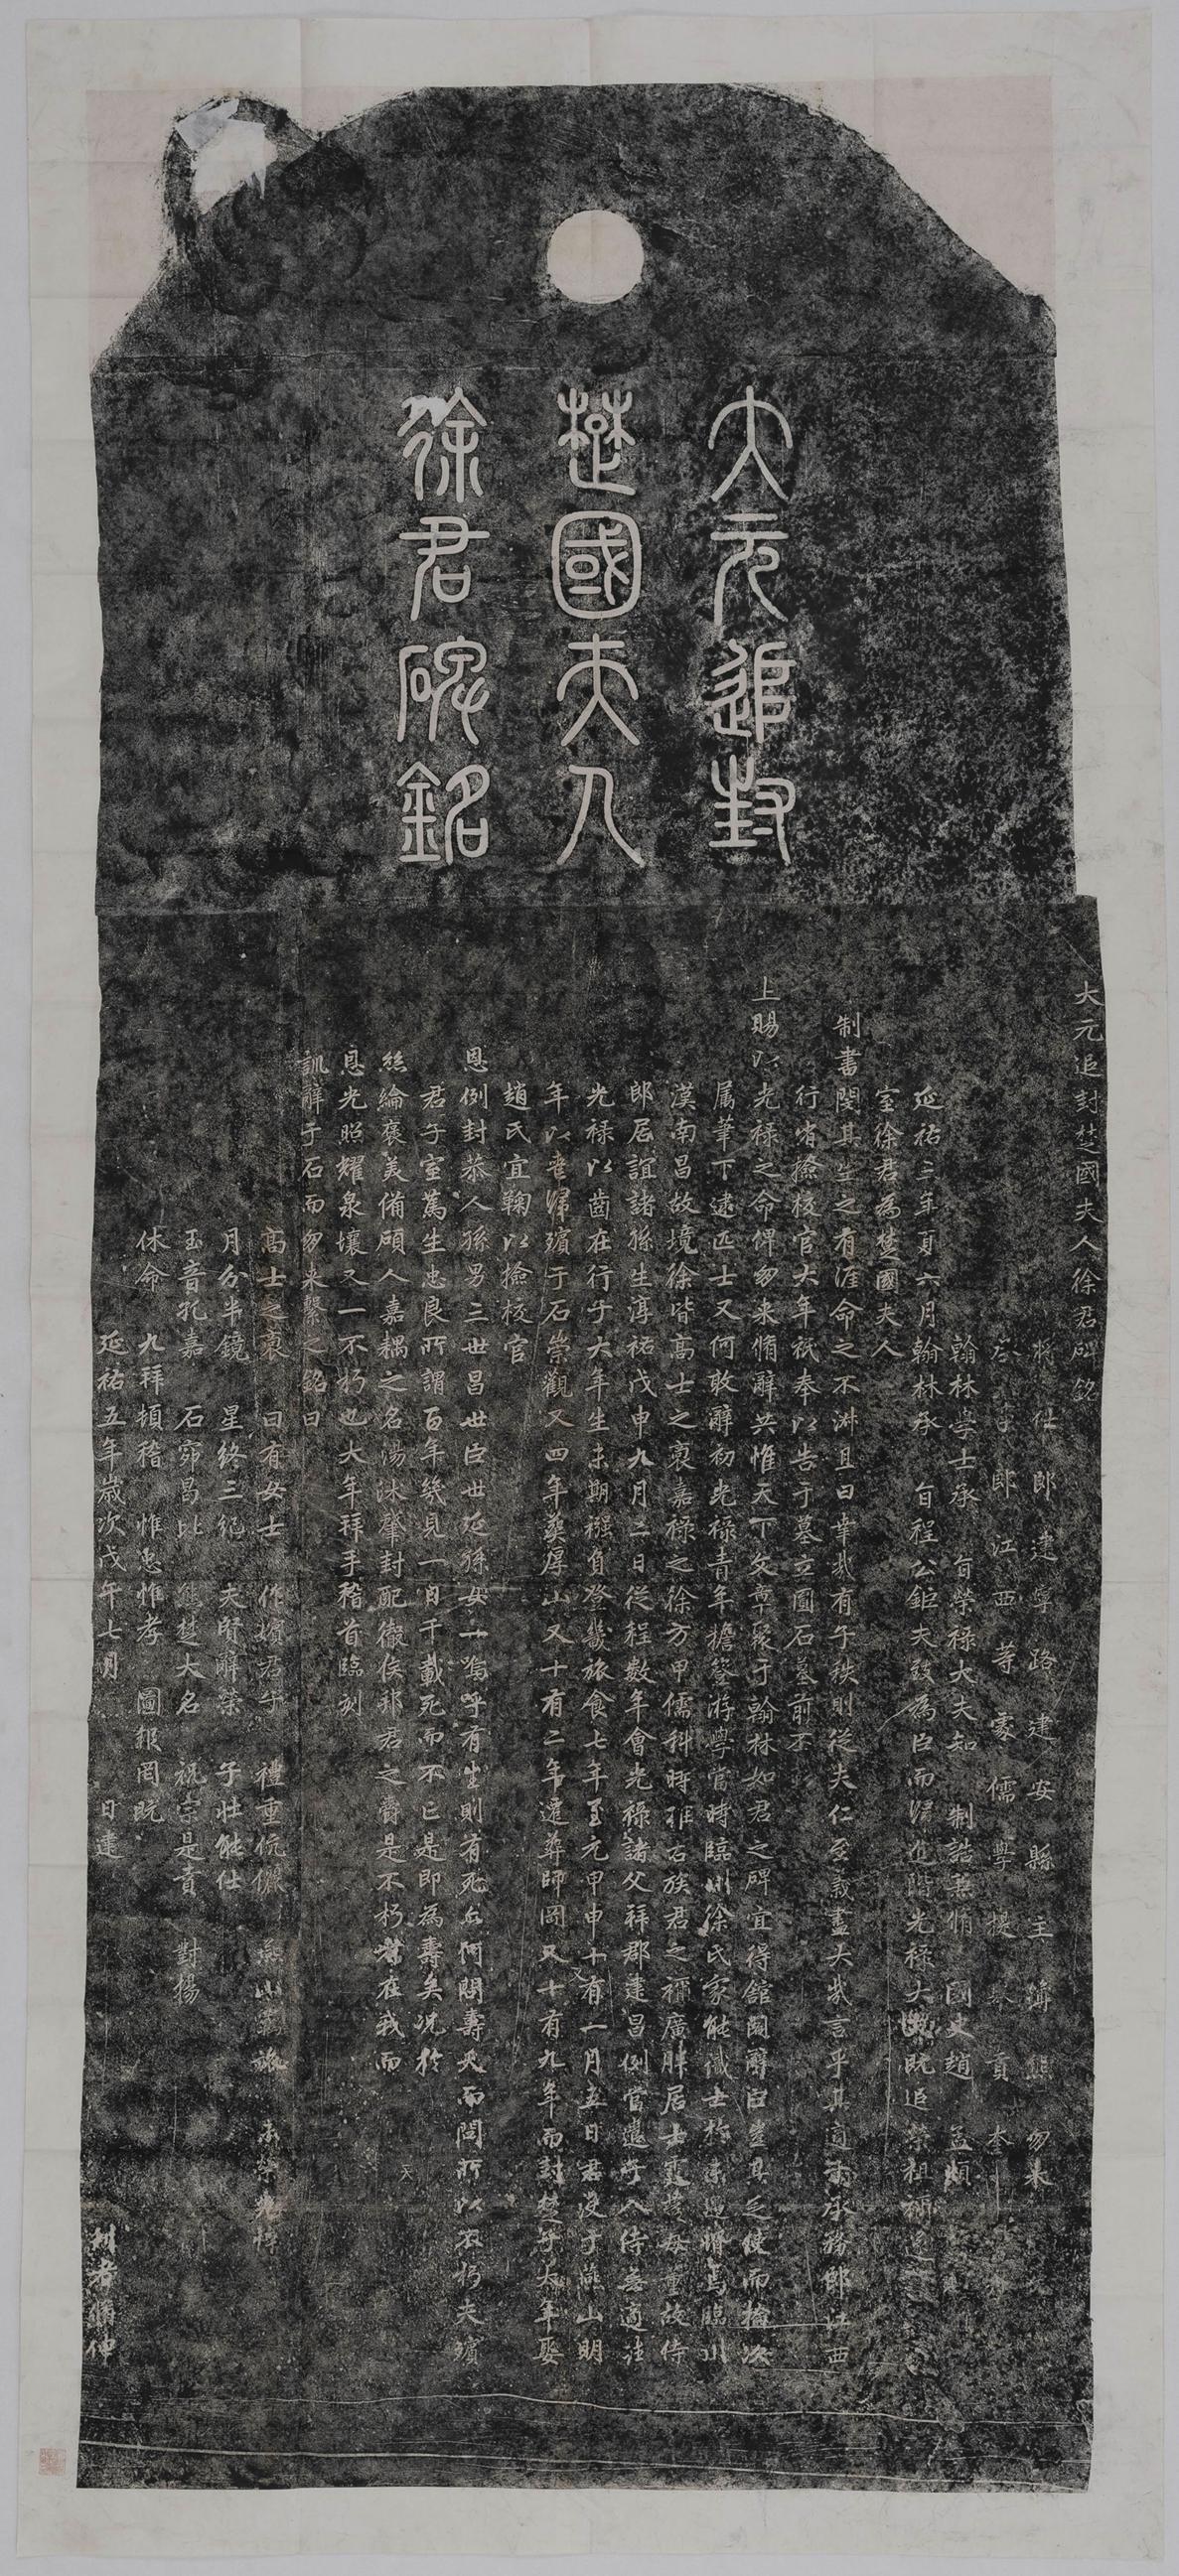 大元追封
楚國夫人
徐君碑銘
大元追封楚國夫人徐君碑銘
將仕郎建寧路建安縣主簿熊朋來
郎江西等處儒學提舉貢奎
翰林學士承旨榮祿大夫知制誥兼脩國史趙孟頫
延祐三年夏六月翰林承旨程公鉅夫致為臣而歸進階光祿大夫既追榮祖禰
室徐君為楚國夫人
制書閔其生之有涯命之不淑且曰幸哉有子秩則從夫仁至義盡大哉言乎其適承務郎江西
行省撿校官大年祇奉以告于墓立圓石墓前
上賜以光祿之命俾朋来脩辭共惟天下文章聚于翰林如君之碑宜得館閣辭臣豈其乏使而掄次
属筆下逮匹士又何敢辭初光祿青年擔簦游學當時臨川徐氏家能
漢南昌故境徐皆高士之裔嘉祿之徐方甲儒科時推右族君之禰廣胖居士
郎居誼諸孫生淳祐戊申九月二日從程數年會光祿諸父拜郡建昌例當遣子入侍
光祿以齒在行子大年生未期襁負啓幾旅食七年至元甲申十有一月五日君沒于燕山明
年以喪歸殯于石崇觀又四年葬厚山又十有二年遷葬師岡又十有九年而封楚子大年娶
趙氏宜鞠以撿校官
恩例封恭人孫男三世昌世臣世延孫女一嗚呼有生則有死奚問壽夭而問所以不朽夫嬪
君子室篤生忠良所謂百年幾見一日千載死而不亡是即為壽矣況於
絲綸褒美備碩人嘉耦之名湯沐肇封配徹侯邦君之爵是不朽者在我而
恩光照耀泉壤又一不朽也大年拜手稽首臨刻
訓辭于石而朋来繫之銘曰
高士之裔 曰有女士 作嬪君子 禮重伉儷 燕山
月分半鏡 星終三紀 夫賢辭榮 子壯能仕
玉音孔嘉 石窌昌比 熊楚大名 祝宗是責 對揚
休命 九拜頓稽 惟忠惟孝 圖報罔既
延祐五年歲次戊午七月 日建